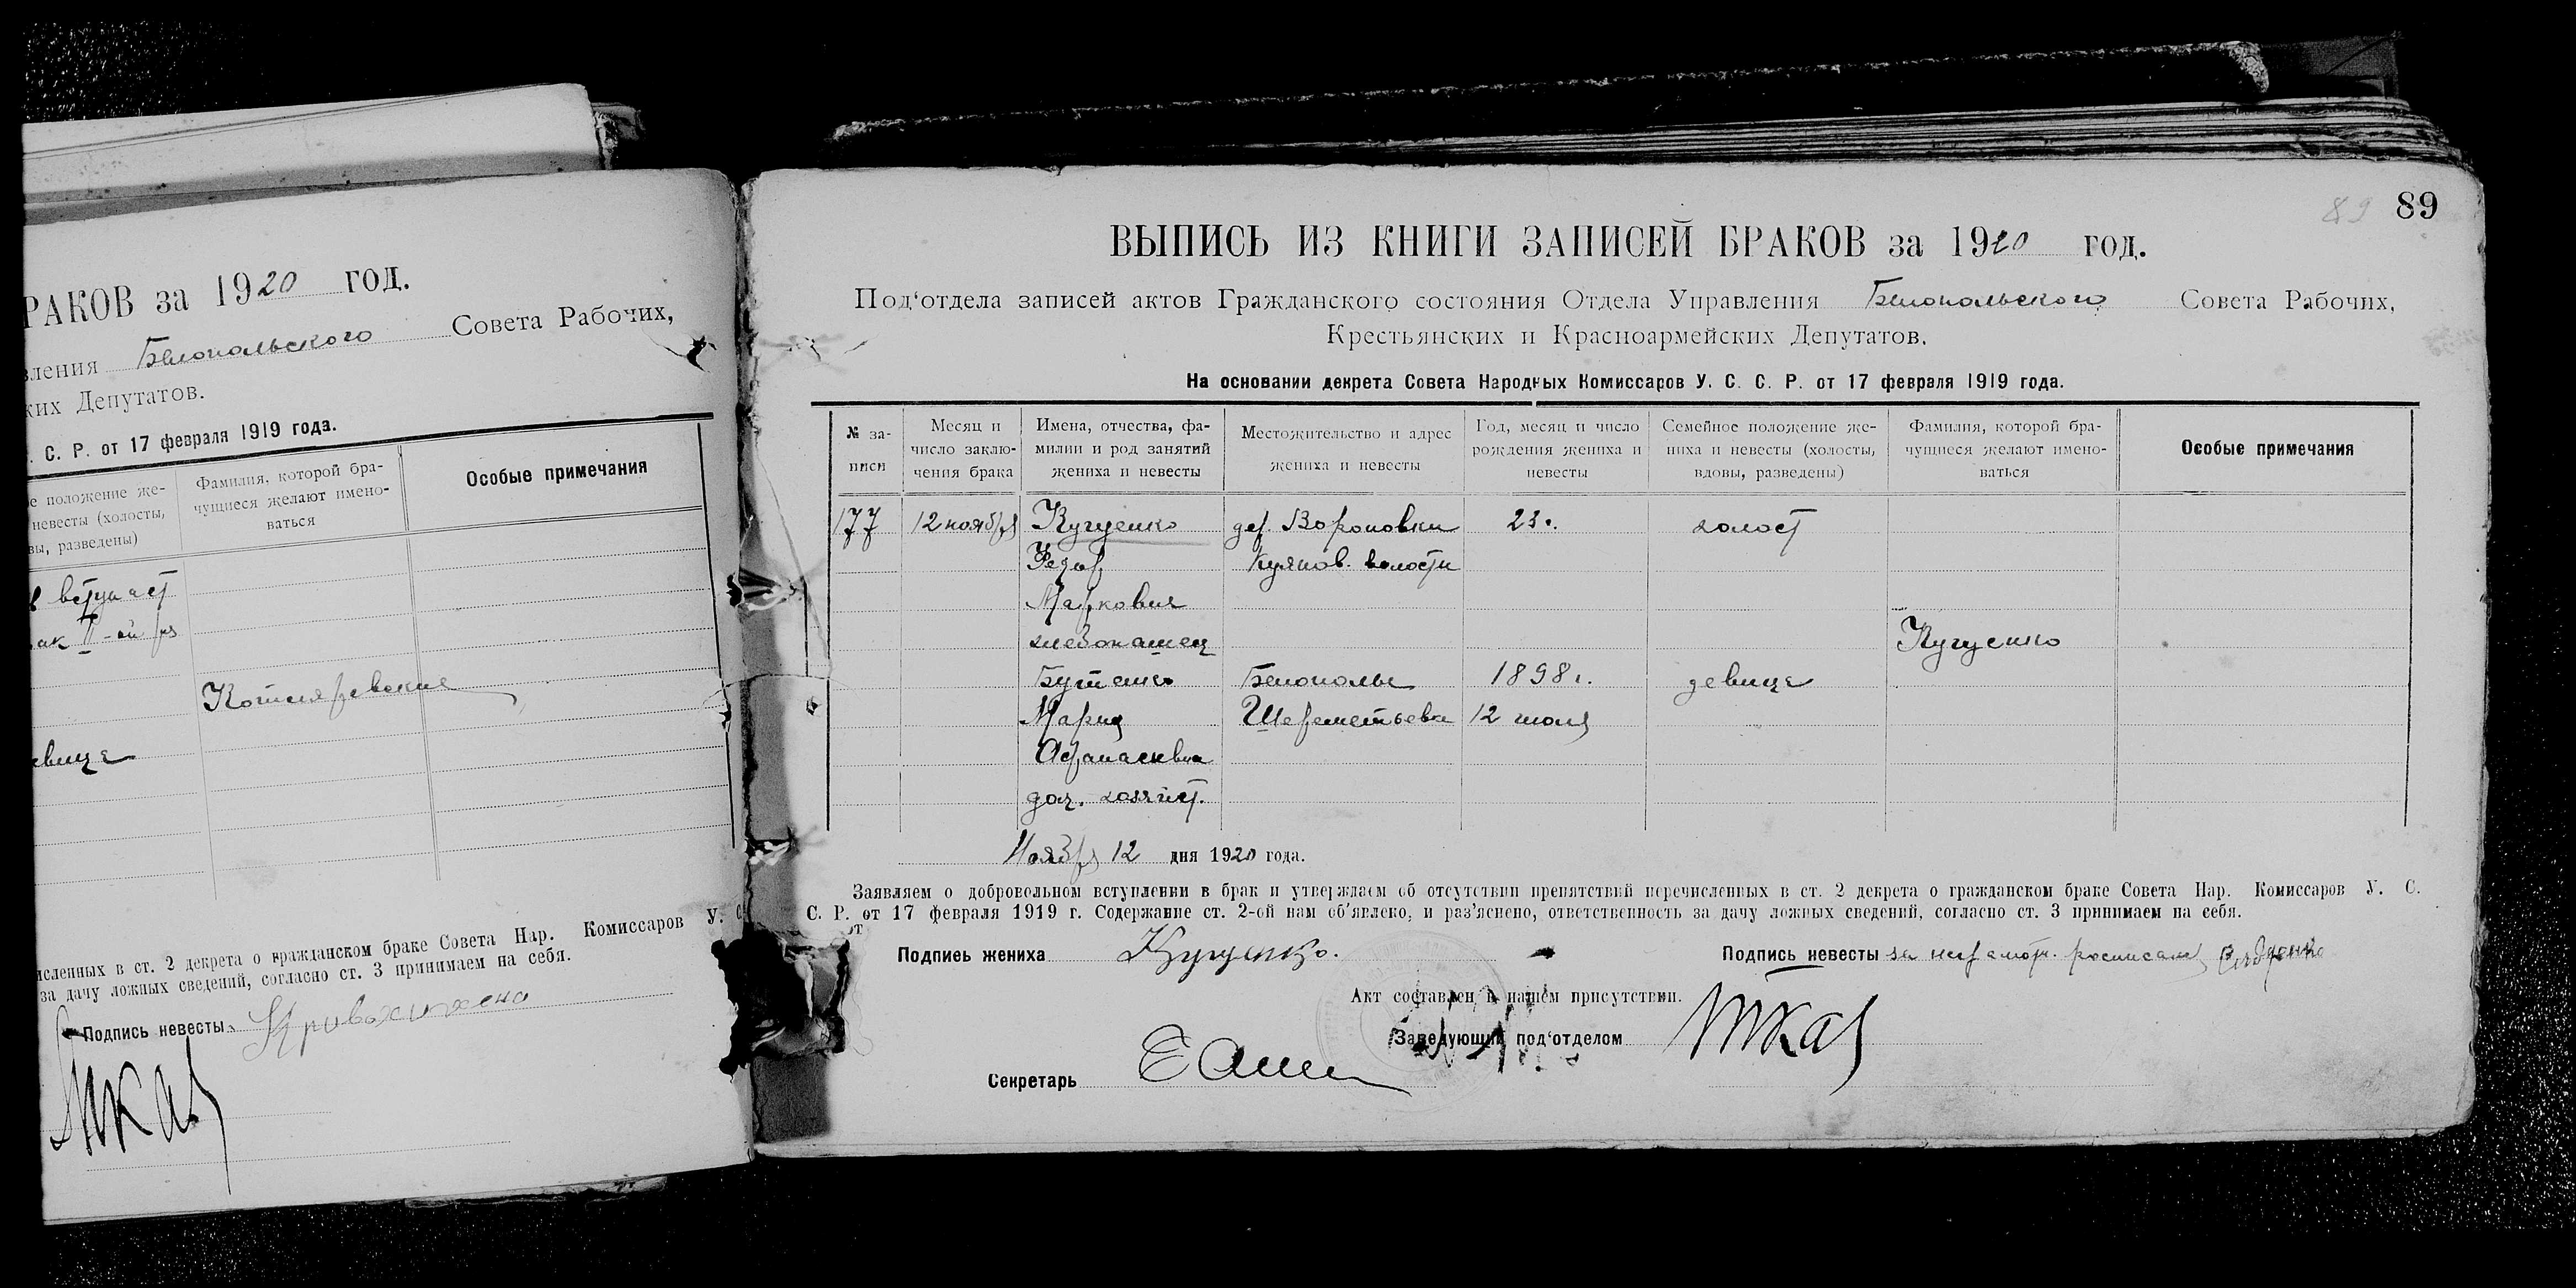 РАКОВ за 1920 год.
вления Белопольского Совета Рабочих,
ких Депутатов.
. С. Р. от 17 февраля 1919 года.
ое положение же-
невесты (холосты,
вы, разведены)
Фамилия, которой бра-
чущиеся желают имено-
ваться
Особые примечания
вступает
ак II-ой раз
Котляревские
евица
исленных в ст. 2 декрета о гражданском браке Совета Нар. Комиссаров У. С
за дачу ложных сведений, согласно ст. 3 принимаем на себя.
Подпись невесты
89 89
ВЫПИСЬ ИЗ КНИГИ ЗАПИСЕЙ БРАКОВ за 1920 год.
Под‘отдела записей актов Гражданского состояния Отдела Управления Белопольского Совета Рабочих,
Крестьянских и Красноармейских Депутатов.
На основании декрета Совета Народных Комиссаров У. С. С. Р. от 17 февраля 1919 года.
№ за-
писи
Месяц и
число заклю-
чения брака
Имена, отчества, фа-
милии и род занятий
жениха и невесты
Местожительство и адрес
жениха и невесты
Год, месяц и число
рождения жениха и
невесты
Семейное положение же-
ниха и невесты (холосты,
вдовы, разведены)
Фамилия, которой бра-
чущиеся желают имено-
ваться
Особые примечания
177 12 ноября Куценко дер. Вороновки 23г. холост
Федор Куянов. волости
Маркович
хлебопашец Куценко
Бутенко Белополье 1898г. девица
Мария Шереметьевка 12 июля
Афанасиевна
дом. хозяйст.
Ноября 12 дня 1920 года.
Заявляем о добровольном вступлении в брак и утверждаем об отсутствии препятствий перечисленных в ст. 2 декрета о гражданском браке Совета Нар. Комиссаров У. С.
С. Р. от 17 февраля 1919 г. Содержание ст. 2-ой нам об‘явлено, и раз‘яснено, ответственность за дачу ложных сведений, согласно ст. 3 принимаем на себя.
от
Подпись жениха Подпись невесты за неграмотн.
Акт составлен в нашем присутствии.
Заведующий под‘отделом Ткач
Секретарь